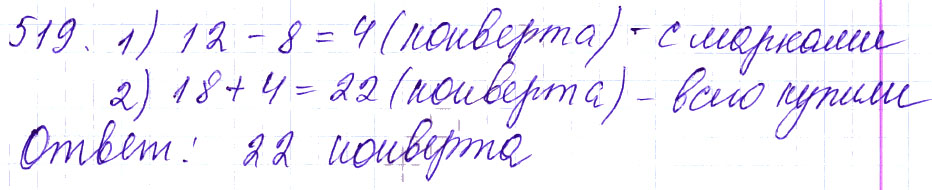 519. 1) 12 - 8 = 4 (конверта) - с марками
2) 18 + 4 = 22 (конверта) - всего купили
Ответ: 22 конверта